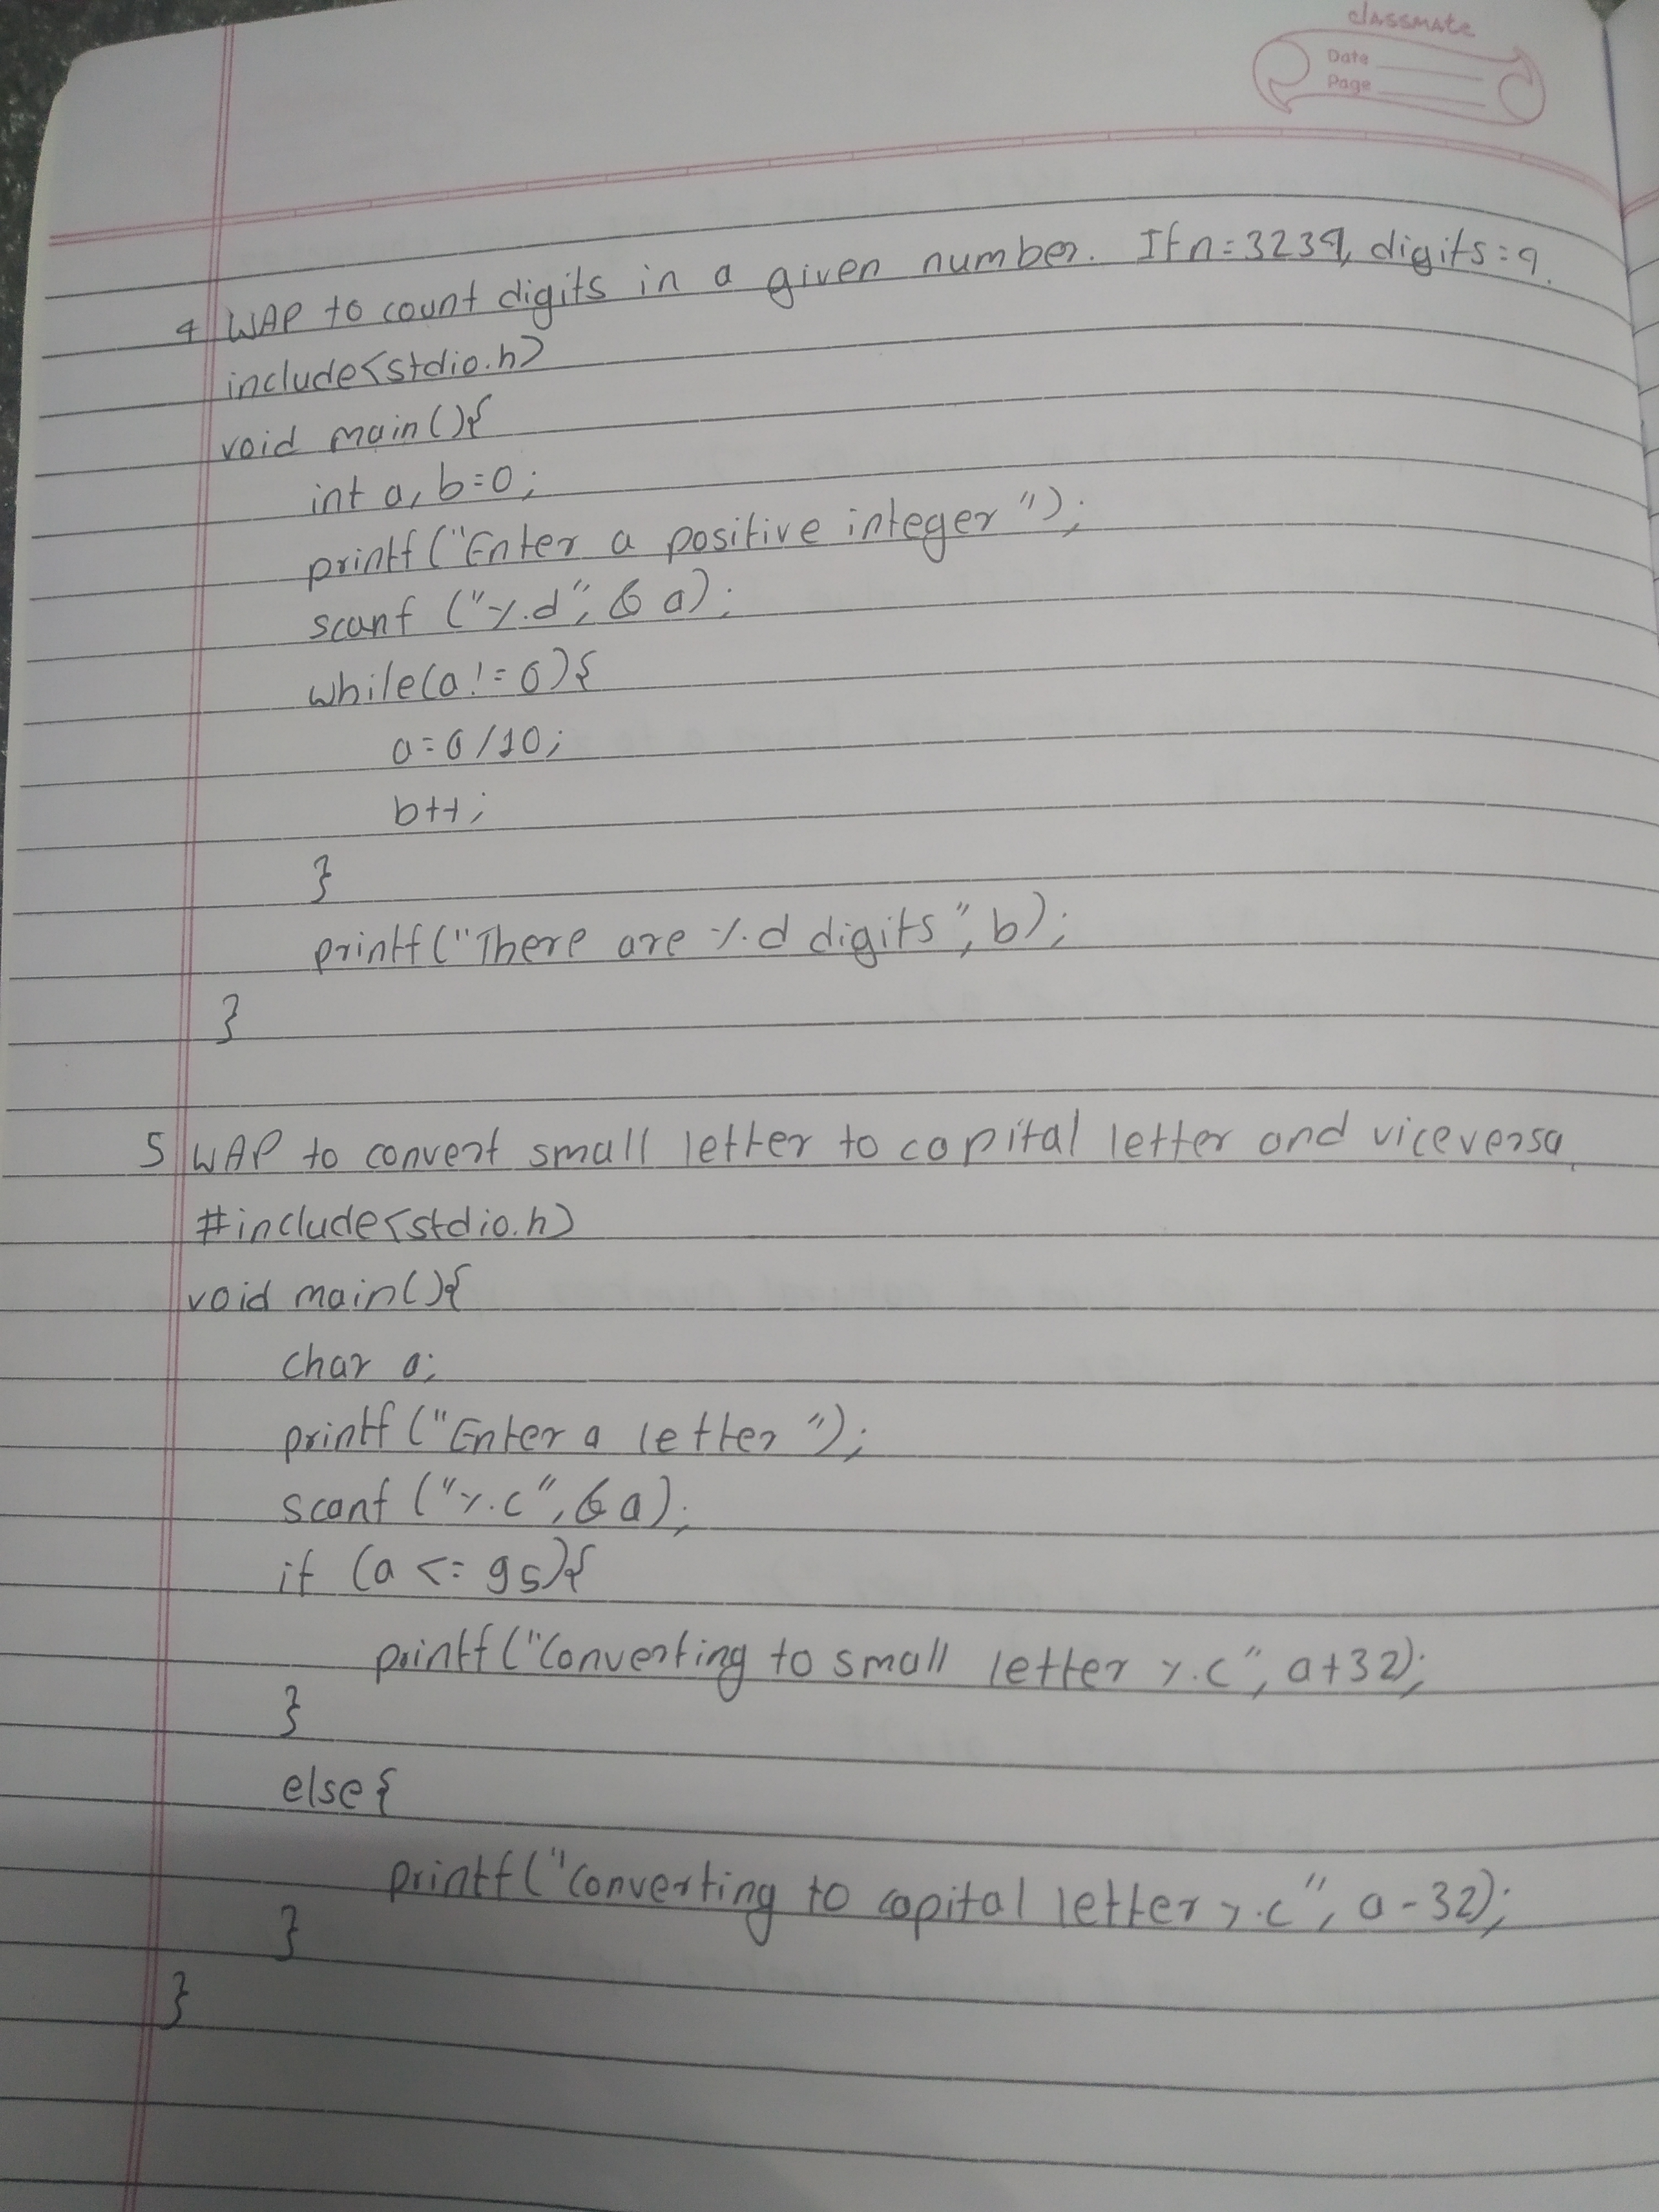 classmate
Date
Page
4 WAP to count digits in a given number. If n=3239, digits=4.
include<stdio.h>
void main(){
int a, b=0;
printf("Enter a positive integer");
scanf ("%d", &a);
while(a!=0){
a=a/10;
b++;
}
printf("There are %d digits", b);
}
5 WAP to convert small letter to capital letter and viceversa.
#include<stdio.h>
void main(){
char a;
printf("Enter a letter");
scanf ("%c", &a);
if (a <= 95){
printf("Converting to small letter %c", a+32);
}
else{
printf("Converting to capital letter %c", a-32);
}
}